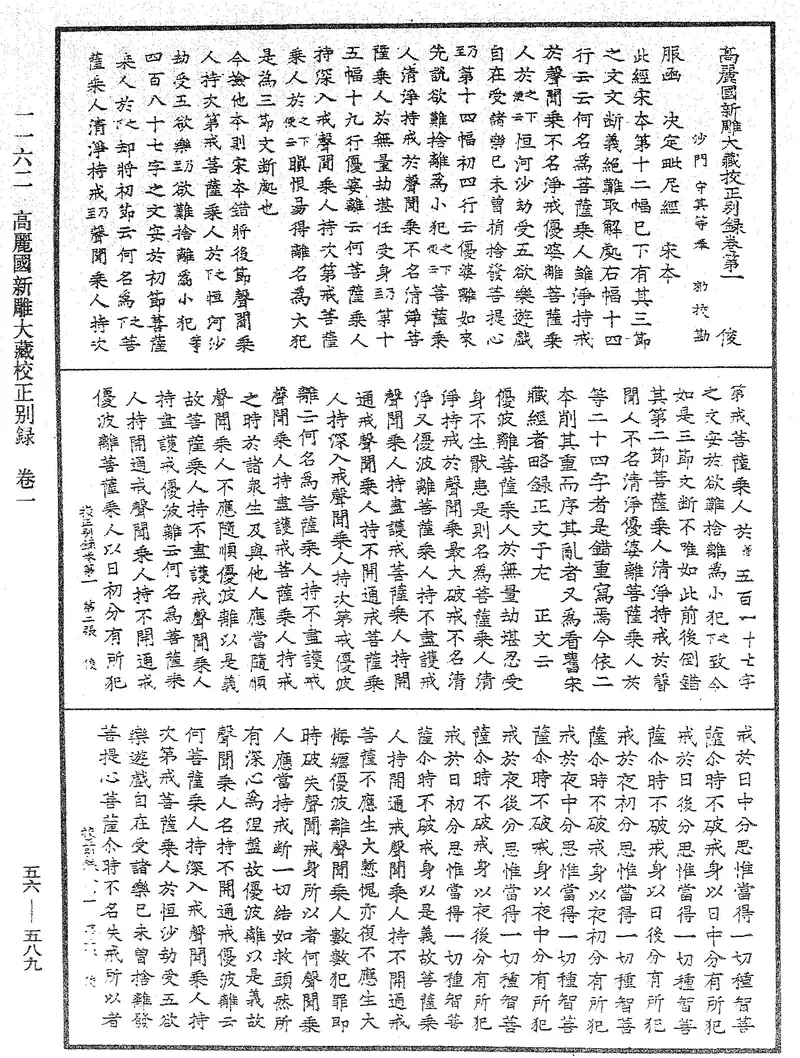 高麗國新雕大藏校正別錄卷第一　俊
沙門　守其等奉　勅校勘
服函　決定毗尼經　宋本
此經宋本第十二幅已下有其三節
之文文斷義絕難取解處右幅十四
行云云何名爲菩薩乘人雖淨持戒
於聲聞乘不名淨戒優婆離菩薩乘
人於之下便云恒河沙劫受五欲樂遊戲
自在受諸樂已未曾捐捨發菩提心
乃至第十四幅初四行云優婆離如來
先說欲難捨離爲小犯之下便云菩薩乘
人清淨持戒於聲聞乘不名清淨菩
薩乘人於無量劫堪任受身乃至第十
五幅十九行優婆離云何菩薩乘人
持深入戒聲聞乘人持次第戒菩薩
乘人於之下便云瞋恨易得離名爲大犯
是爲三節文斷處也
今撿他本則宋本錯將後節聲聞乘
人持次第戒菩薩乘人於之下恒河沙
劫受五欲樂乃至欲難捨離爲小犯等
四百八十七字之文安於初節菩薩
乘人於之下却將初節云何名爲之下菩
薩乘人清淨持戒乃至聲聞乘人持次
第戒菩薩乘人於等五百一十七字
之文安於欲難捨離爲小犯之下致令
如是三節文斷不唯如此前後倒錯
其第二節菩薩乘人清淨持戒於聲
聞人不名清淨優婆離菩薩乘人於
等二十四字者是錯重寫焉今依二
本削其重而序其亂者又爲看舊宋
藏經者略錄正文于左　正文云
優波離菩薩乘人於無量劫堪忍受
身不生猒患是則名爲菩薩乘人清
淨持戒於聲聞乘最大破戒不名清
淨又優波離菩薩乘人持不盡護戒
聲聞乘人持盡護戒菩薩乘人持開
通戒聲聞乘人持不開通戒菩薩乘
人持深入戒聲聞乘人持次第戒優波
離云何名爲菩薩乘人持不盡護戒
聲聞乘人持盡護戒菩薩乘人持戒
之時於諸衆生及與他人應當隨順
聲聞乘人不應隨順優波離以是義
故菩薩乘人持不盡護戒聲聞乘人
持盡護戒優波離云何名爲菩薩乘
人持開通戒聲聞乘人持不開通戒
優波離菩薩乘人以日初分有所犯
校正別錄卷第一　第二張　俊
戒於日中分思惟當得一切種智菩
薩尒時不破戒身以日中分有所犯
戒於日後分思惟當得一切種智菩
薩尒時不破戒身以日後分有所犯
戒於夜初分思惟當得一切種智菩
薩尒時不破戒身以夜初分有所犯
戒於夜中分思惟當得一切種智菩
薩尒時不破戒身以夜中分有所犯
戒於夜後分思惟當得一切種智菩
薩尒時不破戒身以夜後分有所犯
戒於日初分思惟當得一切種智菩
薩尒時不破戒身以是義故菩薩乘
人持開通戒聲聞乘人持不開通戒
菩薩不應生大慙愧亦復不應生大
悔纏優波離聲聞乘人數數犯罪即
時破失聲聞戒身所以者何聲聞乘
人應當持戒斷一切結如救頭然所
有深心爲涅盤故優波離以是義故
聲聞乘人名持不開通戒優波離云
何菩薩乘人持深入戒聲聞乘人持
次第戒菩薩乘人於恒沙劫受五欲
樂遊戲自在受諸樂已未曾捨離發
菩提心菩薩尒時不名失戒所以者
一一六二　高麗國新雕大藏校正別録　卷一
五六——五八九